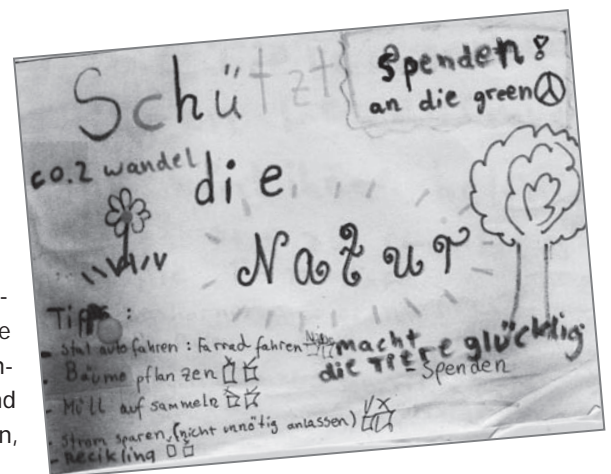 Schützt
Spenden!
an die green
co.2 wandel
die
Natur
Tipps :
- Stat autofahren : Farrad fahren
- Bäume pflanzen
- Müll aufsammeln
- Strom sparen, (nicht unnötig anlassen)
- Recikling
macht
die Tiere glücklig
Spenden